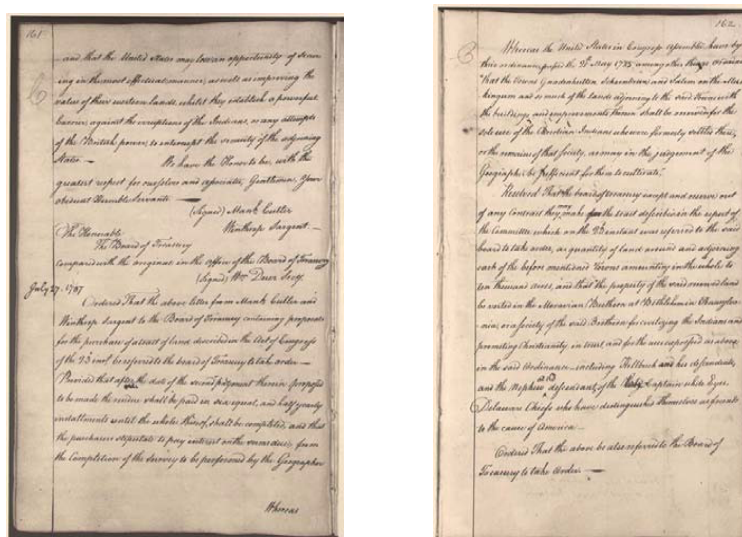 161
and that the United States may have an opportunity of secur
ing in the most effectual manner, as well as improving the
value of their western lands, whilst they establish a powerful
barrier, against the irruptions of the Indians, or any attempts
of the British power, to interrupt the security of the adjoining
States. — We have the Honor to be, with the
greatest respect for ourselves and associates, Gentlemen, Your
obedient Humble Servants —
(Signed) Manh. Cutler
Winthrop Sargent. —
The Honorable
The Board of Treasury
compared with the original in the Office of the Board of Treasury
(Signed) Wm Duer Secy.
July 27. 1787
Ordered That the above letter from Manh. Cutler and
Winthrop Sargent to the Board of Treasury containing proposals
for the purchase of a tract of land described in the Act of Congress
of the 23 inst. be referred to the board of Treasury to take order —
Provided that after the date of the second payment therein proposed
to be made the residue shall be paid in six equal, and half yearly
instalments until the whole thereof, shall be completed, and that
the purchasers stipulate to pay interest on the sums due, from
the Completion of the Survey to be performed by the Geographer
Whereas
162
Whereas the United States in Congress assembled have by
their ordinance passed the 20 May 1785 among other things ordained
"that the Towns Gnadenhutten Schoenbrun and Salem on the Mus
kingum and so much of the lands adjoining to the said Towns with
the buildings and improvements thereon shall be reserved for the
sole use of the Christian Indians who were formerly settled there,
or the remains of that society, as may in the judgement of the
Geographer be sufficient for them to cultivate."
Resolved That the board of treasury except and reserve out
of any Contract they may make for the tract described in the report of
the Committee which on the 23 instant was referred to the said
board to take order, a quantity of land around and adjoining
each of the before mentioned Towns amounting in the whole to
ten thousand acres, and that the property of the said reserved land
be vested in the Moravian Brethren at Bethlehem Pennsylva-
nia, or a society of the said Brethren for civilizing the Indians and
promoting Christianity, in trust and for the uses expressed as above
in the said Ordinance — including Killbuck and his descendants,
and the Nephew and descendants of the late Captain white Eyes
Delaware Chiefs who have distinguished themselves as friends
to the cause of America —
Ordered That the above be also referred to the Board of
Treasury to take Order. —